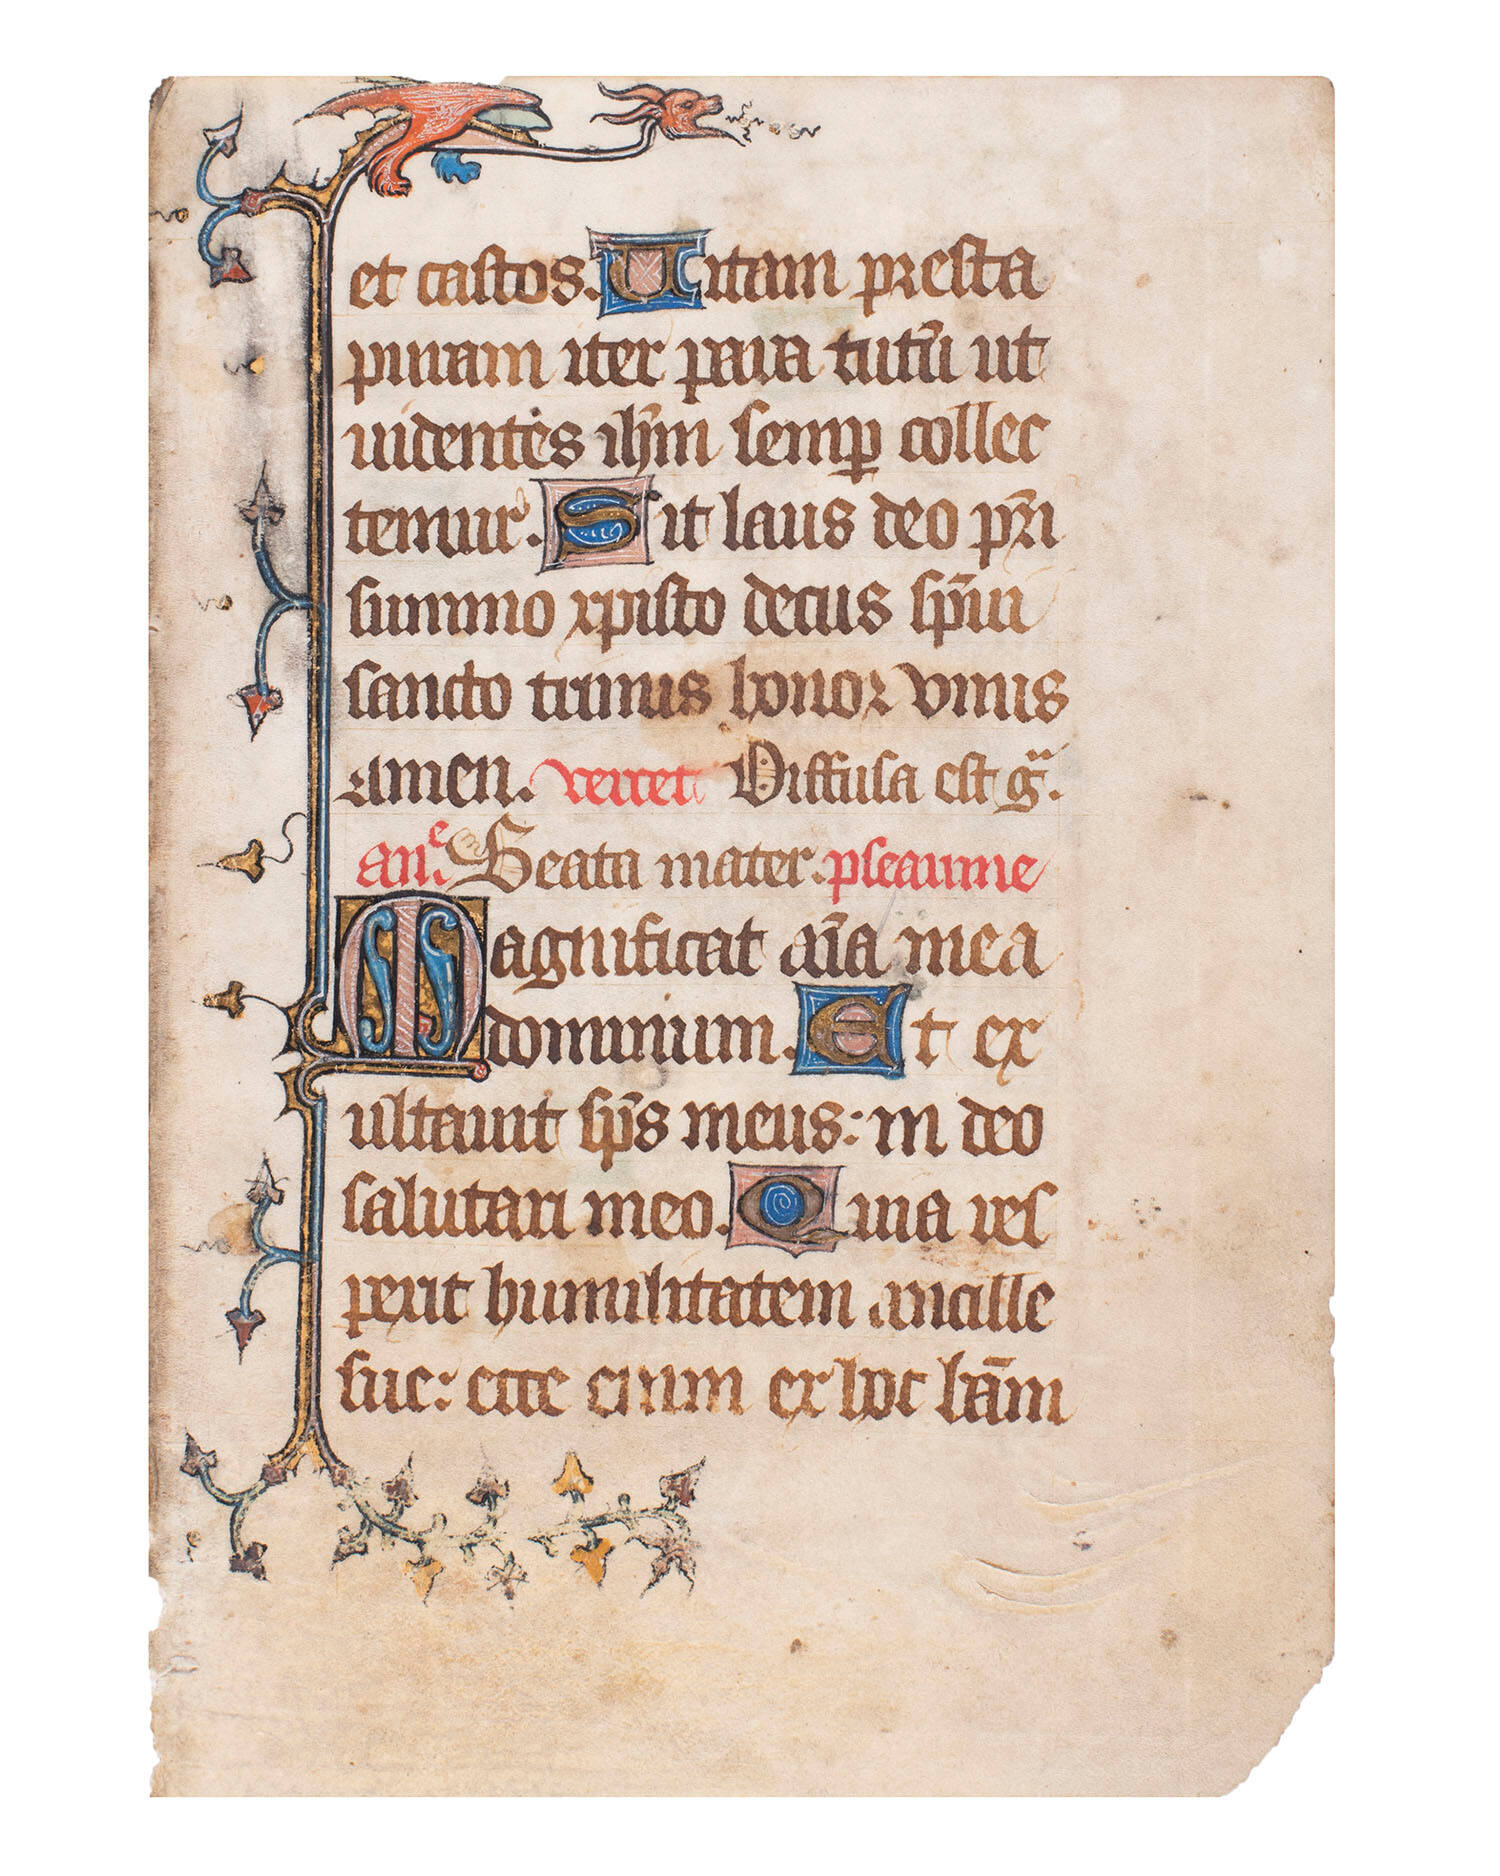 et castos. Uitam presta
puram iter para tutū ut
uidentes ih̄m semꝑ collec
temur. Sit laus deo pr̄i
summo xp̄isto decus sp̄ui
sancto trinus honor vnus
amen. verset Diffusa est gᵃ.
anᵉ. Beata mater. pseaume
Magnificat aīa mea
dominum. Et ex
ultauit sp̄s meus: in deo
salutari meo. Quia res
pexit humilitatem ancille
sue: ecce enim ex hoc bēam